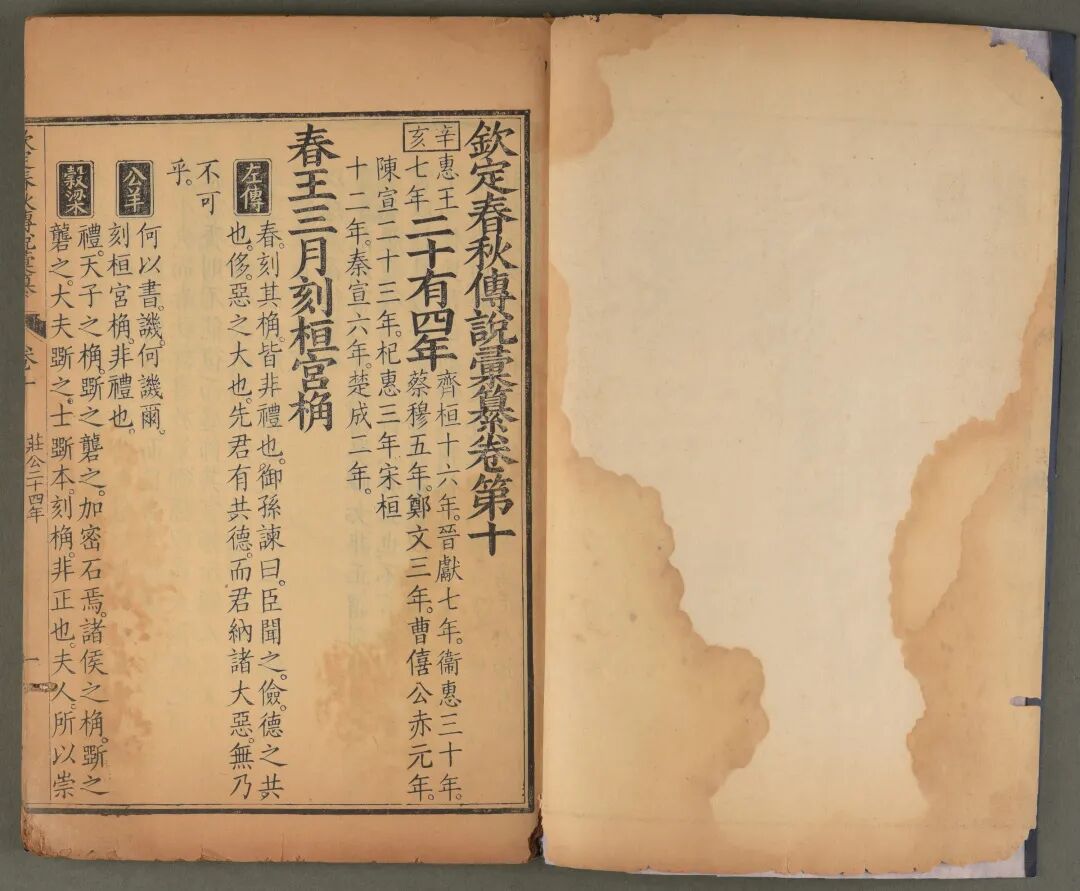 欽定春秋傳說彙纂卷第十
辛亥
惠王
七年
二十有四年
齊桓十六年。晉獻七年。衞惠三十年。
蔡穆五年。鄭文三年。曹僖公赤元年。
陳宣二十三年。杞惠三年宋桓
十二年。秦宣六年。楚成二年。
春王三月刻桓宮桷
左傳
春。刻其桷。皆非禮也。御孫諫曰。臣聞之。儉。德之共
也。侈。惡之大也。先君有共德。而君納諸大惡。無乃
不可
乎。
公羊
何以書。譏。何譏爾。
刻桓宮桷。非禮也。
穀梁
禮。天子之桷。斵之礱之。加密石焉。諸侯之桷。斵之
礱之。大夫斵之。士斵本。刻桷。非正也。夫人。所以崇
欽定春秋傳說彙纂
卷十
莊公二十四年
一